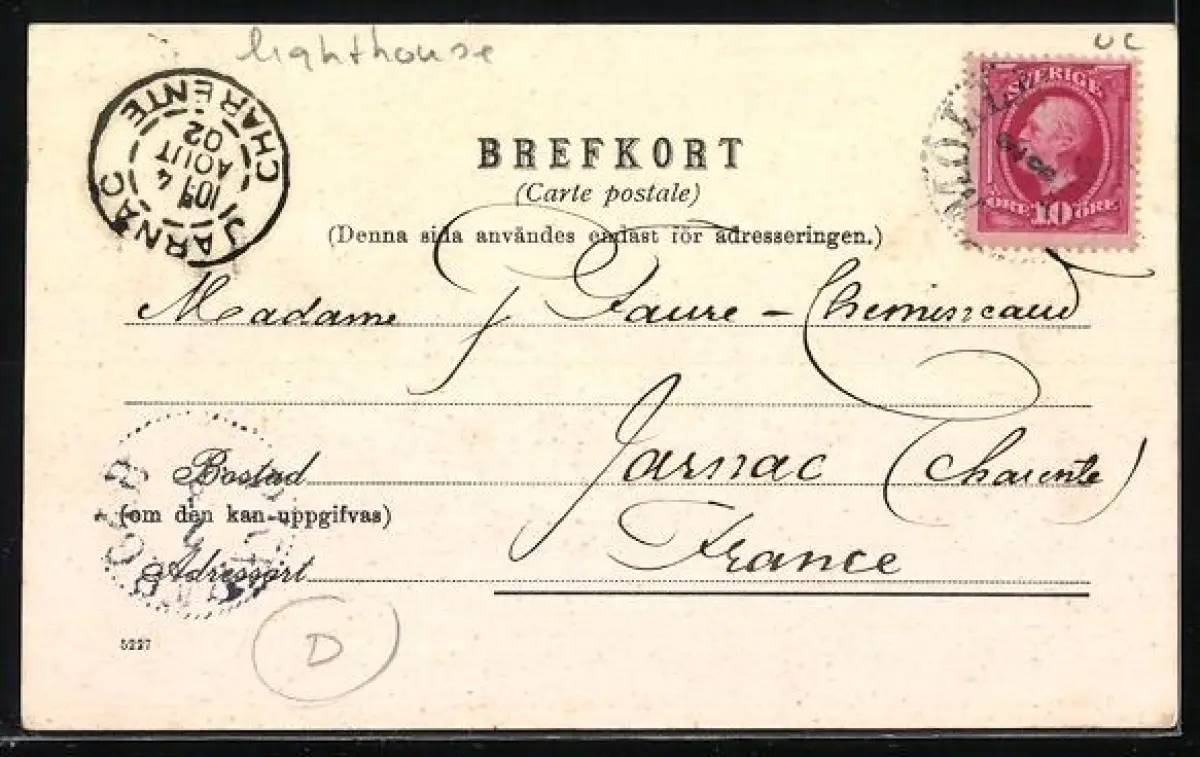 lighthouse
UC
JARNAC
CHARENTE
4
AOUT
02
SVERIGE
ÖRE 10 ÖRE
BREFKORT
(Carte postale)
(Denna sida användes endast för adresseringen.)
Madame J Faure - Chemineaud
Jarnac (Charente)
France
Bostad
(om den kan uppgifvas)
Adressort
5227
D